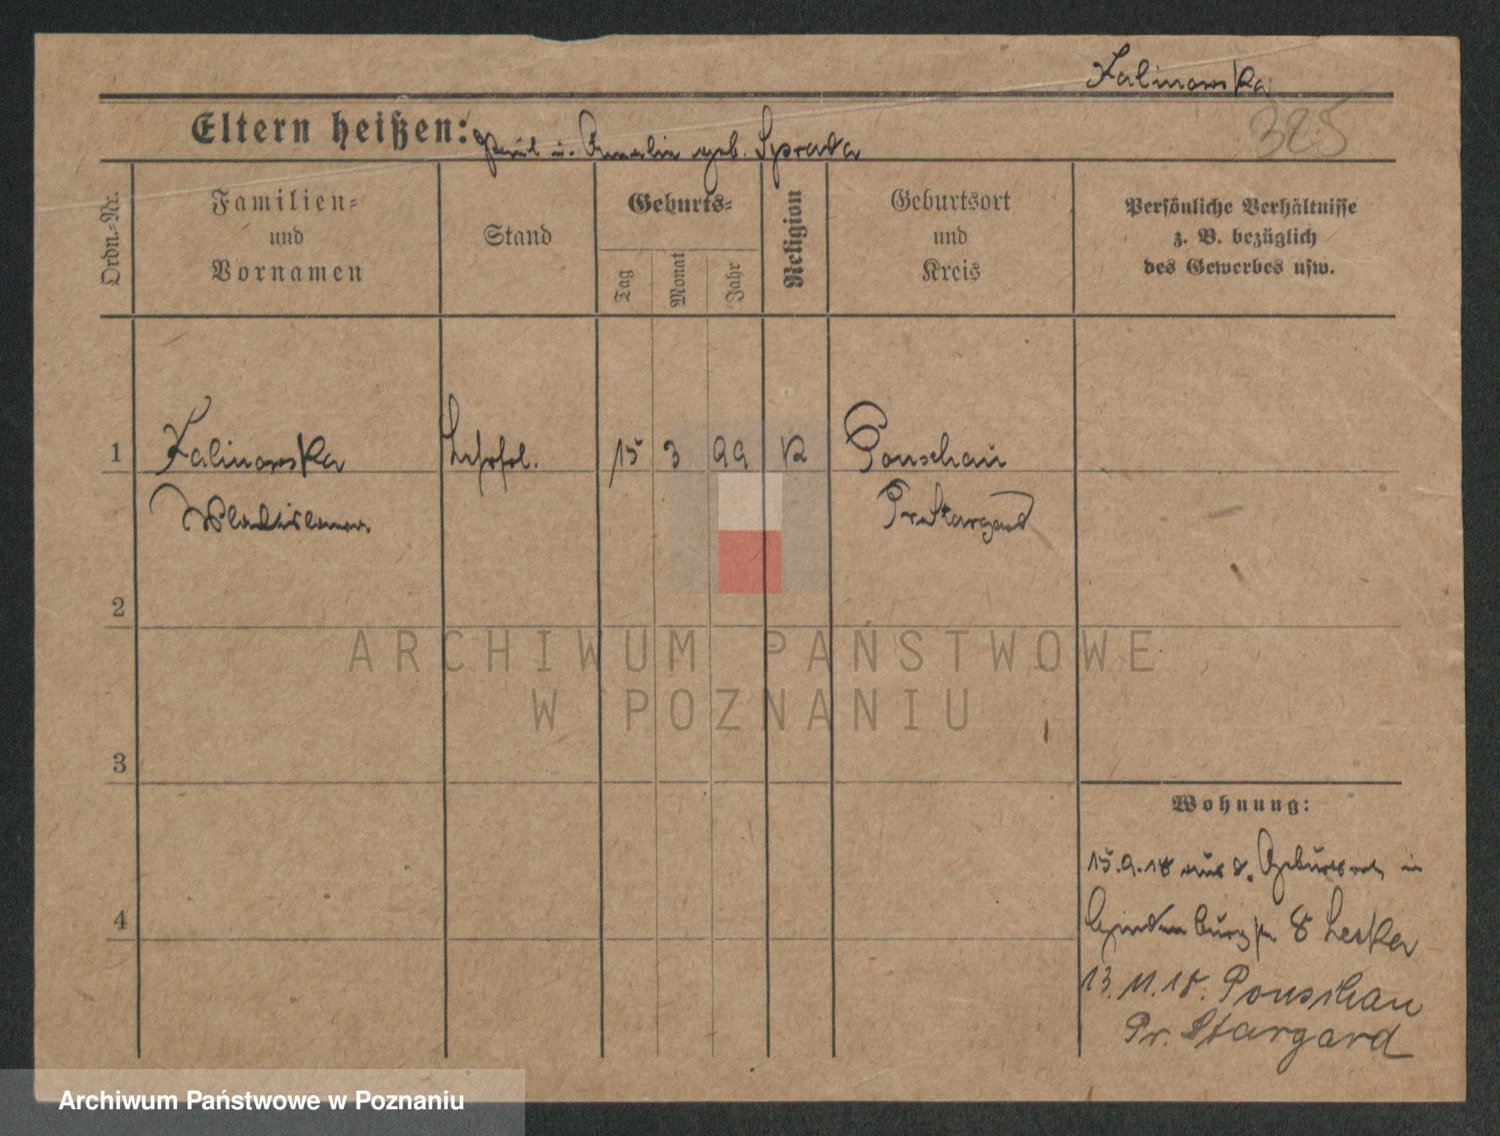 Kalinowska
325
Eltern heißen: Paul u. Amalie geb. Sprada
Ordn.-Nr.
Familien-
und
Vornamen
Stand
Geburts-
Tag
Monat
Jahr
Religion
Geburtsort
und
Kreis
Persönliche Verhältnisse
z. B. bezüglich
des Gewerbes usw.
1 Kalinowska Lehrfrl. 15 3 99 K Ponschau
Wladislawa Pr Stargard
2
ARCHIWUM PAŃSTWOWE
W POZNANIU
3
Wohnung:
15.9.18 aus d. Geburtsort in
4
Hindenburgstr 8 Leska
13.11.18. Ponschau
Pr. Stargard
Archiwum Państwowe w Poznaniu